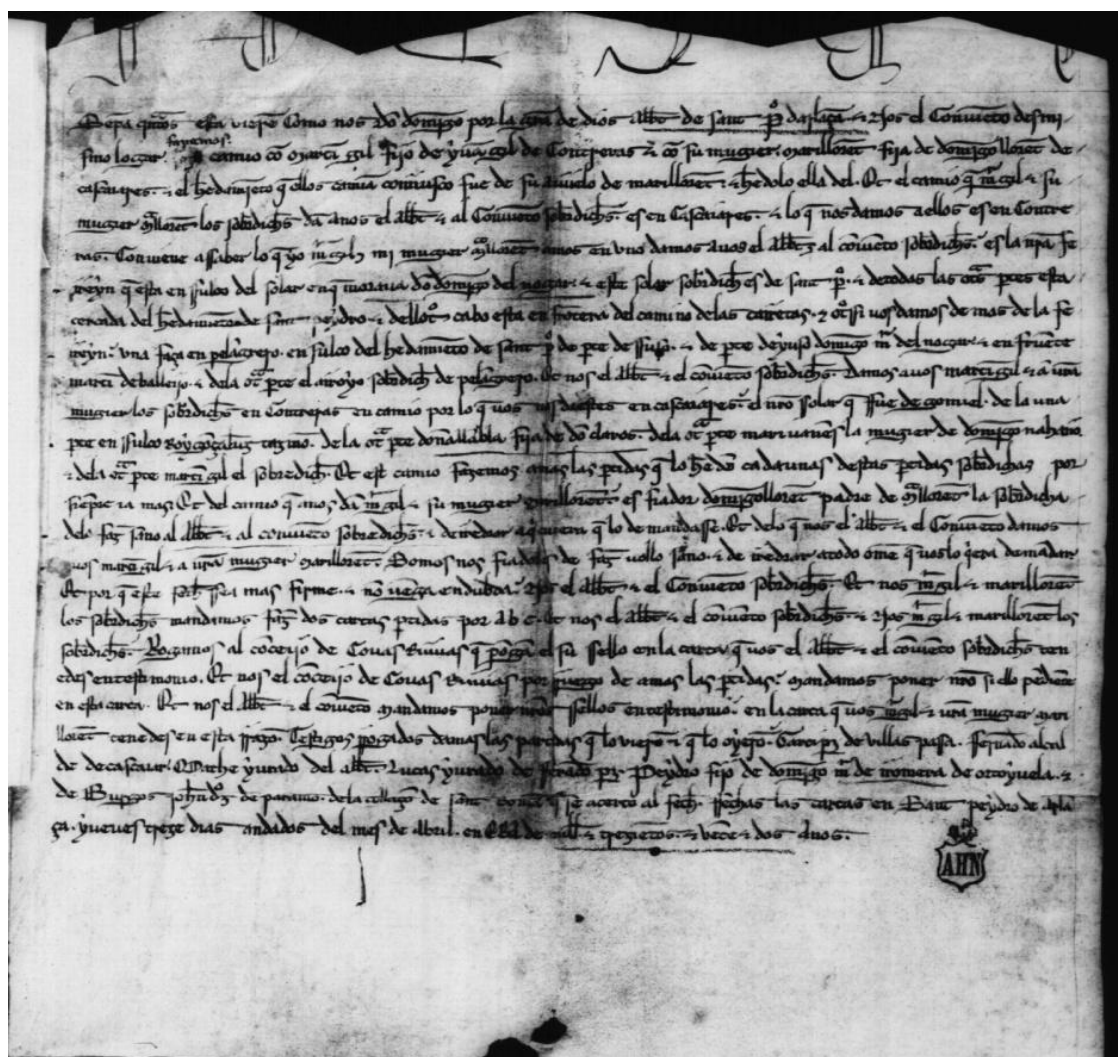 Sepa qntos esta viere Como nos do domigo por la gra de dios Abbt de sant po darlaça. & yos el Conuieto desmi
fazemos
smo logar. camio co Marti gil fijo de yua gil de Contreras & co su mugier. marillorẽt fija de domigo llorẽt de
cascaiares. & el hedamieto q ellos camia comusco fue de su auuelo de marillorẽt. & hedolo ella del. Et el camio q mi gil & su
mugier Mllorẽt los sobdichos da anos el abbt & al Conueto sobdichos. es en Cascaiares. & lo q nos damos a ellos es en Contre
ras. Conuiene assaber lo q yo mi gil & mi mugier Mllorẽt amos en vno damos auos el abbt & al coueto sobdichos. es la nra fe
rreyn q esta en ssulco del solar en q moraua do domigo del nogar. & este solar sobdicho es de sant po. & de todas las otas ptes esta
cercada del hedamieto de sant peydro. & dello ot cabo esta en frotera del camino delas carretas. & otsi uos damos de mas de la fe
rreyn. vna faça en peligrejo. en sulco del hedamieto de sant po de pte de ssuso. & de pte de yuso domigo mi del nogar. & en fruete
marti de ballejo. & dela ota pte el arroyo sobdicho de peligrejo. Et nos el abbt & el coueto sobdichos. Damos auos marti gil & a ura
mugier los sobdichos en Contreras en camio por lo q uos nos diestes en cascaiares. el nro ssolar q ffue de gomiel. de la una
pte en ssulco Roy de la ota pte dona llabla fija de do claros. dela ota pte mari iuanes la mugier de domigo
& dela ota pte marti gil el sobredicho. Et est camio fazemos amas las ptidas q lo hedo cadaunas destas ptidas sobdichas por
siepre ia mas. Et del camio q anos da mi gil & su mugier Marillorẽt. es fiador domigo llorẽt padre de Mllorẽt la sobdicha
delo faz sano al abbt & al conueto sobredichos. & de redrar a qquiera q lo demandasse. Et delo q nos el abbt & el Conueto damos
uos marti gil & a ura mugier Marillorẽt. Somos nos fiadores de faz uollo sano. & de redrar a todo ome q uos lo qera demadar
Et por q este fecho sea mas firme. & no uega en dubda. Nos el abbt & el Conueto sobdichos. Et nos mi gil & marillorẽt
los sobdichos mandamos faz dos cartas ptidas por a b c. Et nos el abbt & el coueto sobdichos. & yos mi gil & marillorẽt los
sobdichos. Rogamos al coceijo de Couas Ruuias q poga el su sello en la carta q uos el abbt & el coueto sobdichos ten
edes en testimonio. Et nos el coceijo de Couas Ruuias por ruego de amas las ptidas. mandamos poner nro siello pediete
en esta carta. Et nos el abbt & el coueto mandamos poner nros ssellos en testimonio. en la carta q uos mi gil & ura mugier mari
llorẽt tenedes en esta rrazo. Testigos rogados damas las partidas q lo viero & q lo oyero. Garci prz de villas pasa. Ferrado alcal
de de cascaiar. Mathe yurado del abbt. Lucas yurado de Ferrado prz. Peydro fijo de domigo mi de de ortoyuela. &
de Burgos johndoz de paramo. dela de sant q se acerto al fecho. ffechas las cartas en Sant peydro de arla
ça. yueues treze dias andados del mes de Abril. en Era de mill & trezietos. & veite & dos Anos.
AHN